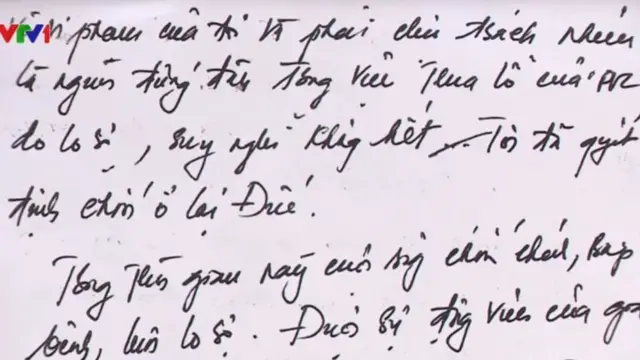 VTV1
vi phạm của tôi và phải chịu trách nhiệm
là người đứng đầu trong việc thua lỗ của PVC
do lo sợ, suy nghĩ không hết, Tôi đã quyết
định trốn ở lại Đức.
Trong thời gian này cuộc sống chốn chánh, bấp
bênh, luôn lo sợ. Được sự động viên của gia